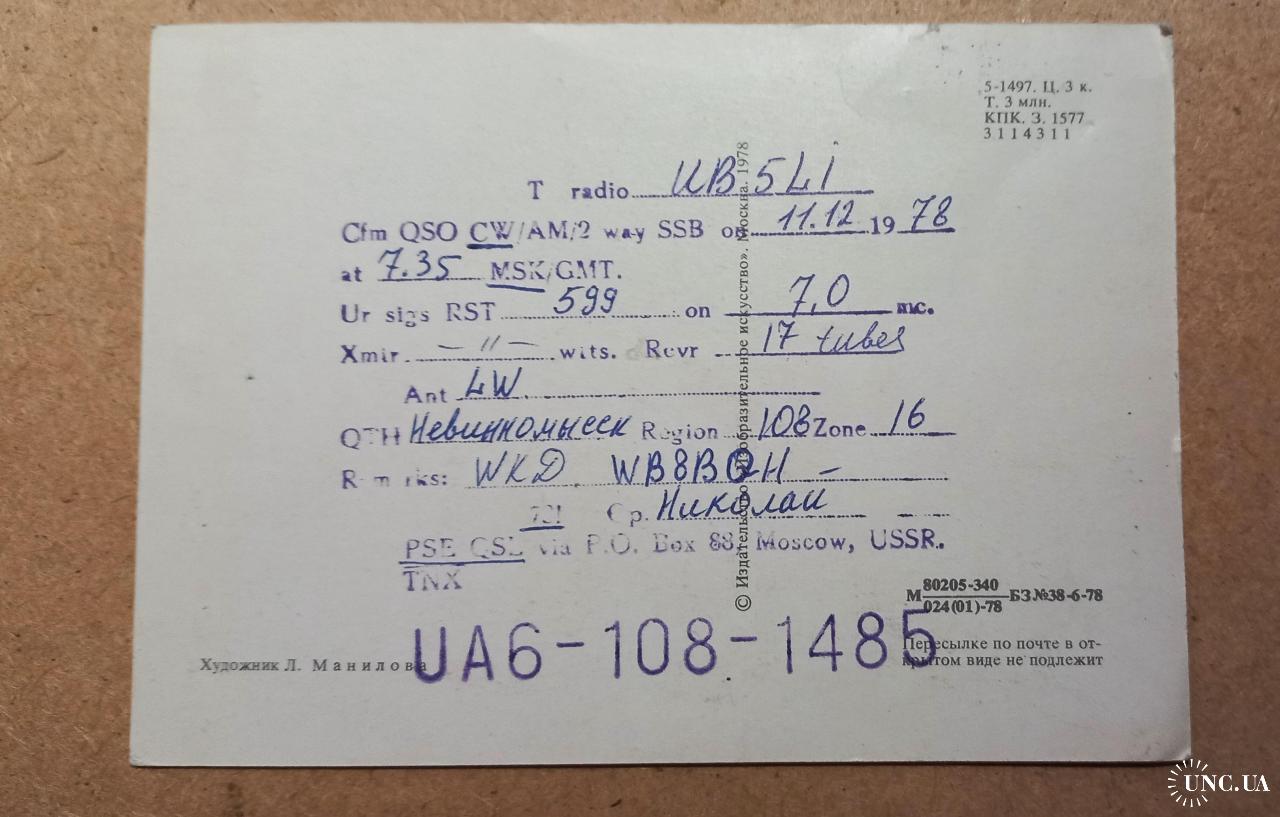 5-1497. Ц. 3 к.
Т. 3 млн.
КПК. З. 1577
3114311
T radio UB5LI
Cfm QSO CW/AM/2 way SSB on 11.12 1978
at 7.35 MSK/GMT.
Ur sigs RST 599 on 7,0 mc.
Xmir. —"— wits. Rcvr 17 tubes
Ant LW
QTH Невинномысск Region 108 Zone 16
WKD WB8BQH —
Op. Николай
PSE QSL via P.O. Box 88, Moscow, USSR.
TNX
© Издательство «Изобразительное искусство». Москва. 1978
М 80205-340 БЗ №38-6-78
024(01)-78
UA6-108-1485
Художник Л. Манилова
Пересылке по почте в от-
крытом виде не подлежит
UNC.UA